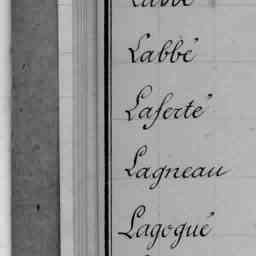 Labbé
Laferté
Lagneau
Lagogué